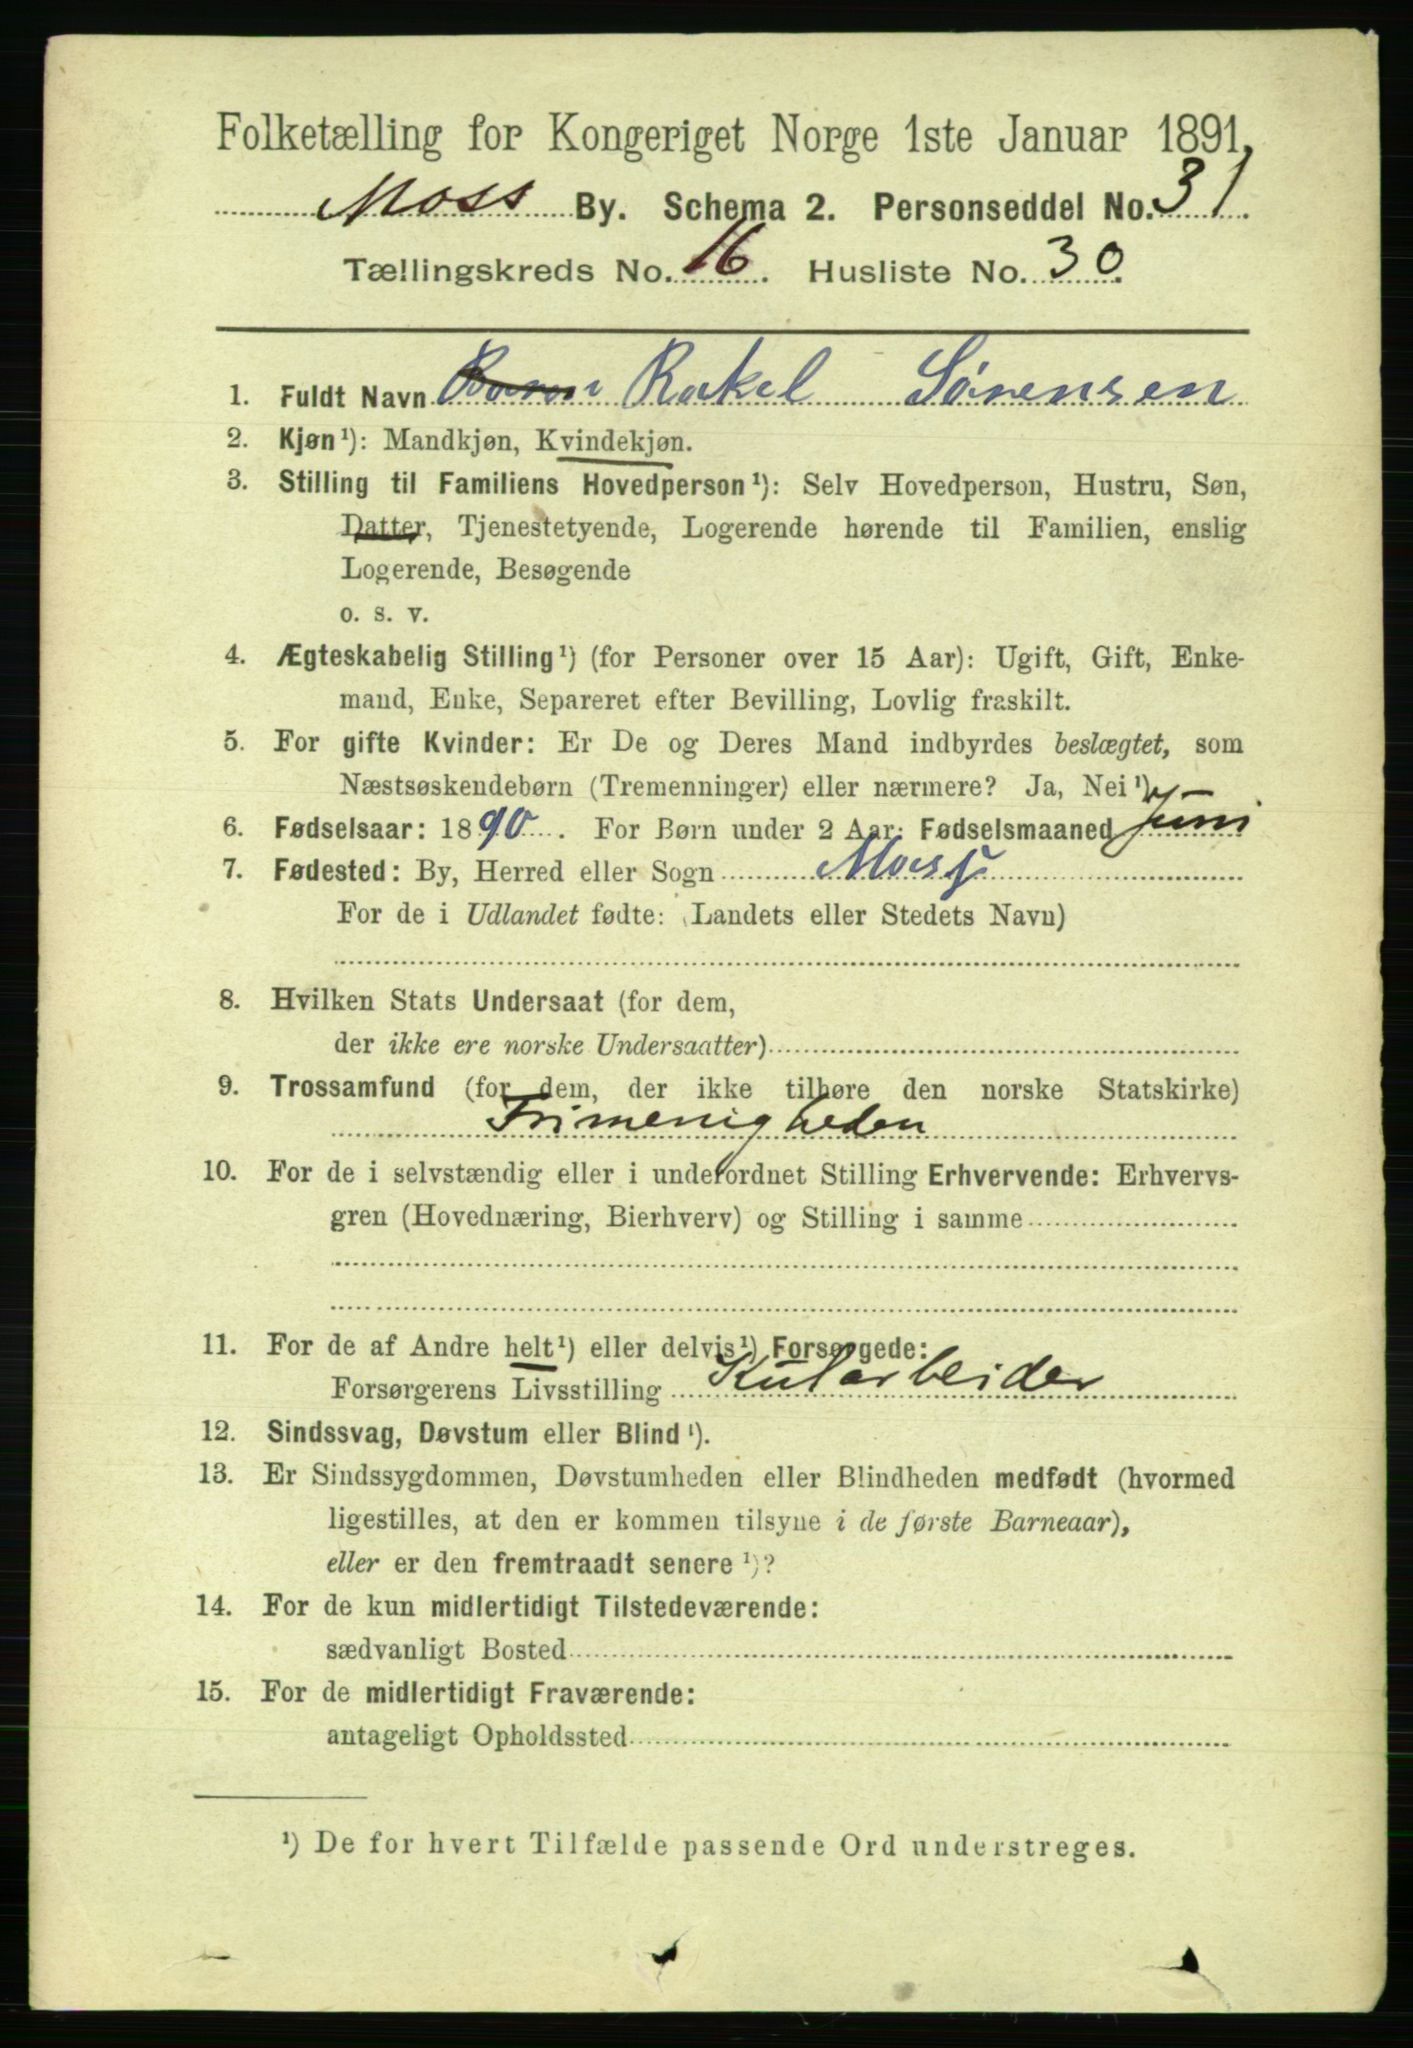 Folketælling for Kongeriget Norge 1ste Januar 1891.
Moss By. Schema 2. Personseddel No. 31
Tællingskreds No. 16. Husliste No. 30.
1. Fuldt Navn Rakel Sørensen
2. Kjøn¹): Mandkjøn, Kvindekjøn.
3. Stilling til Familiens Hovedperson¹): Selv Hovedperson, Hustru, Søn,
Datter, Tjenestetyende, Logerende hørende til Familien, enslig
Logerende, Besøgende
o. s. v.
4. Ægteskabelig Stilling¹) (for Personer over 15 Aar): Ugift, Gift, Enke-
mand, Enke, Separeret efter Bevilling, Lovlig fraskilt.
5. For gifte Kvinder: Er De og Deres Mand indbyrdes beslægtet, som
Næstsøskendebørn (Tremenninger) eller nærmere? Ja, Nei¹)
6. Fødselsaar: 1890. For Børn under 2 Aar: Fødselsmaaned Juni
7. Fødested: By, Herred eller Sogn Moss
For de i Udlandet fødte: (Landets eller Stedets Navn)
8. Hvilken Stats Undersaat (for dem,
der ikke ere norske Undersaatter)
9. Trossamfund (for dem, der ikke tilhøre den norske Statskirke)
Frimenigheden
10. For de i selvstændig eller i underordnet Stilling Erhvervende: Erhvervs-
gren (Hovednæring, Bierhverv) og Stilling i samme
11. For de af Andre helt¹) eller delvis¹) Forsørgede:
Forsørgerens Livsstilling Kularbeider
12. Sindssvag, Døvstum eller Blind¹).
13. Er Sindssygdommen, Døvstumheden eller Blindheden medfødt (hvormed
ligestilles, at den er kommen tilsyne i de første Barneaar),
eller er den fremtraadt senere¹)?
14. For de kun midlertidigt Tilstedeværende:
sædvanligt Bosted
15. For de midlertidigt Fraværende:
antageligt Opholdssted
¹) De for hvert Tilfælde passende Ord understreges.